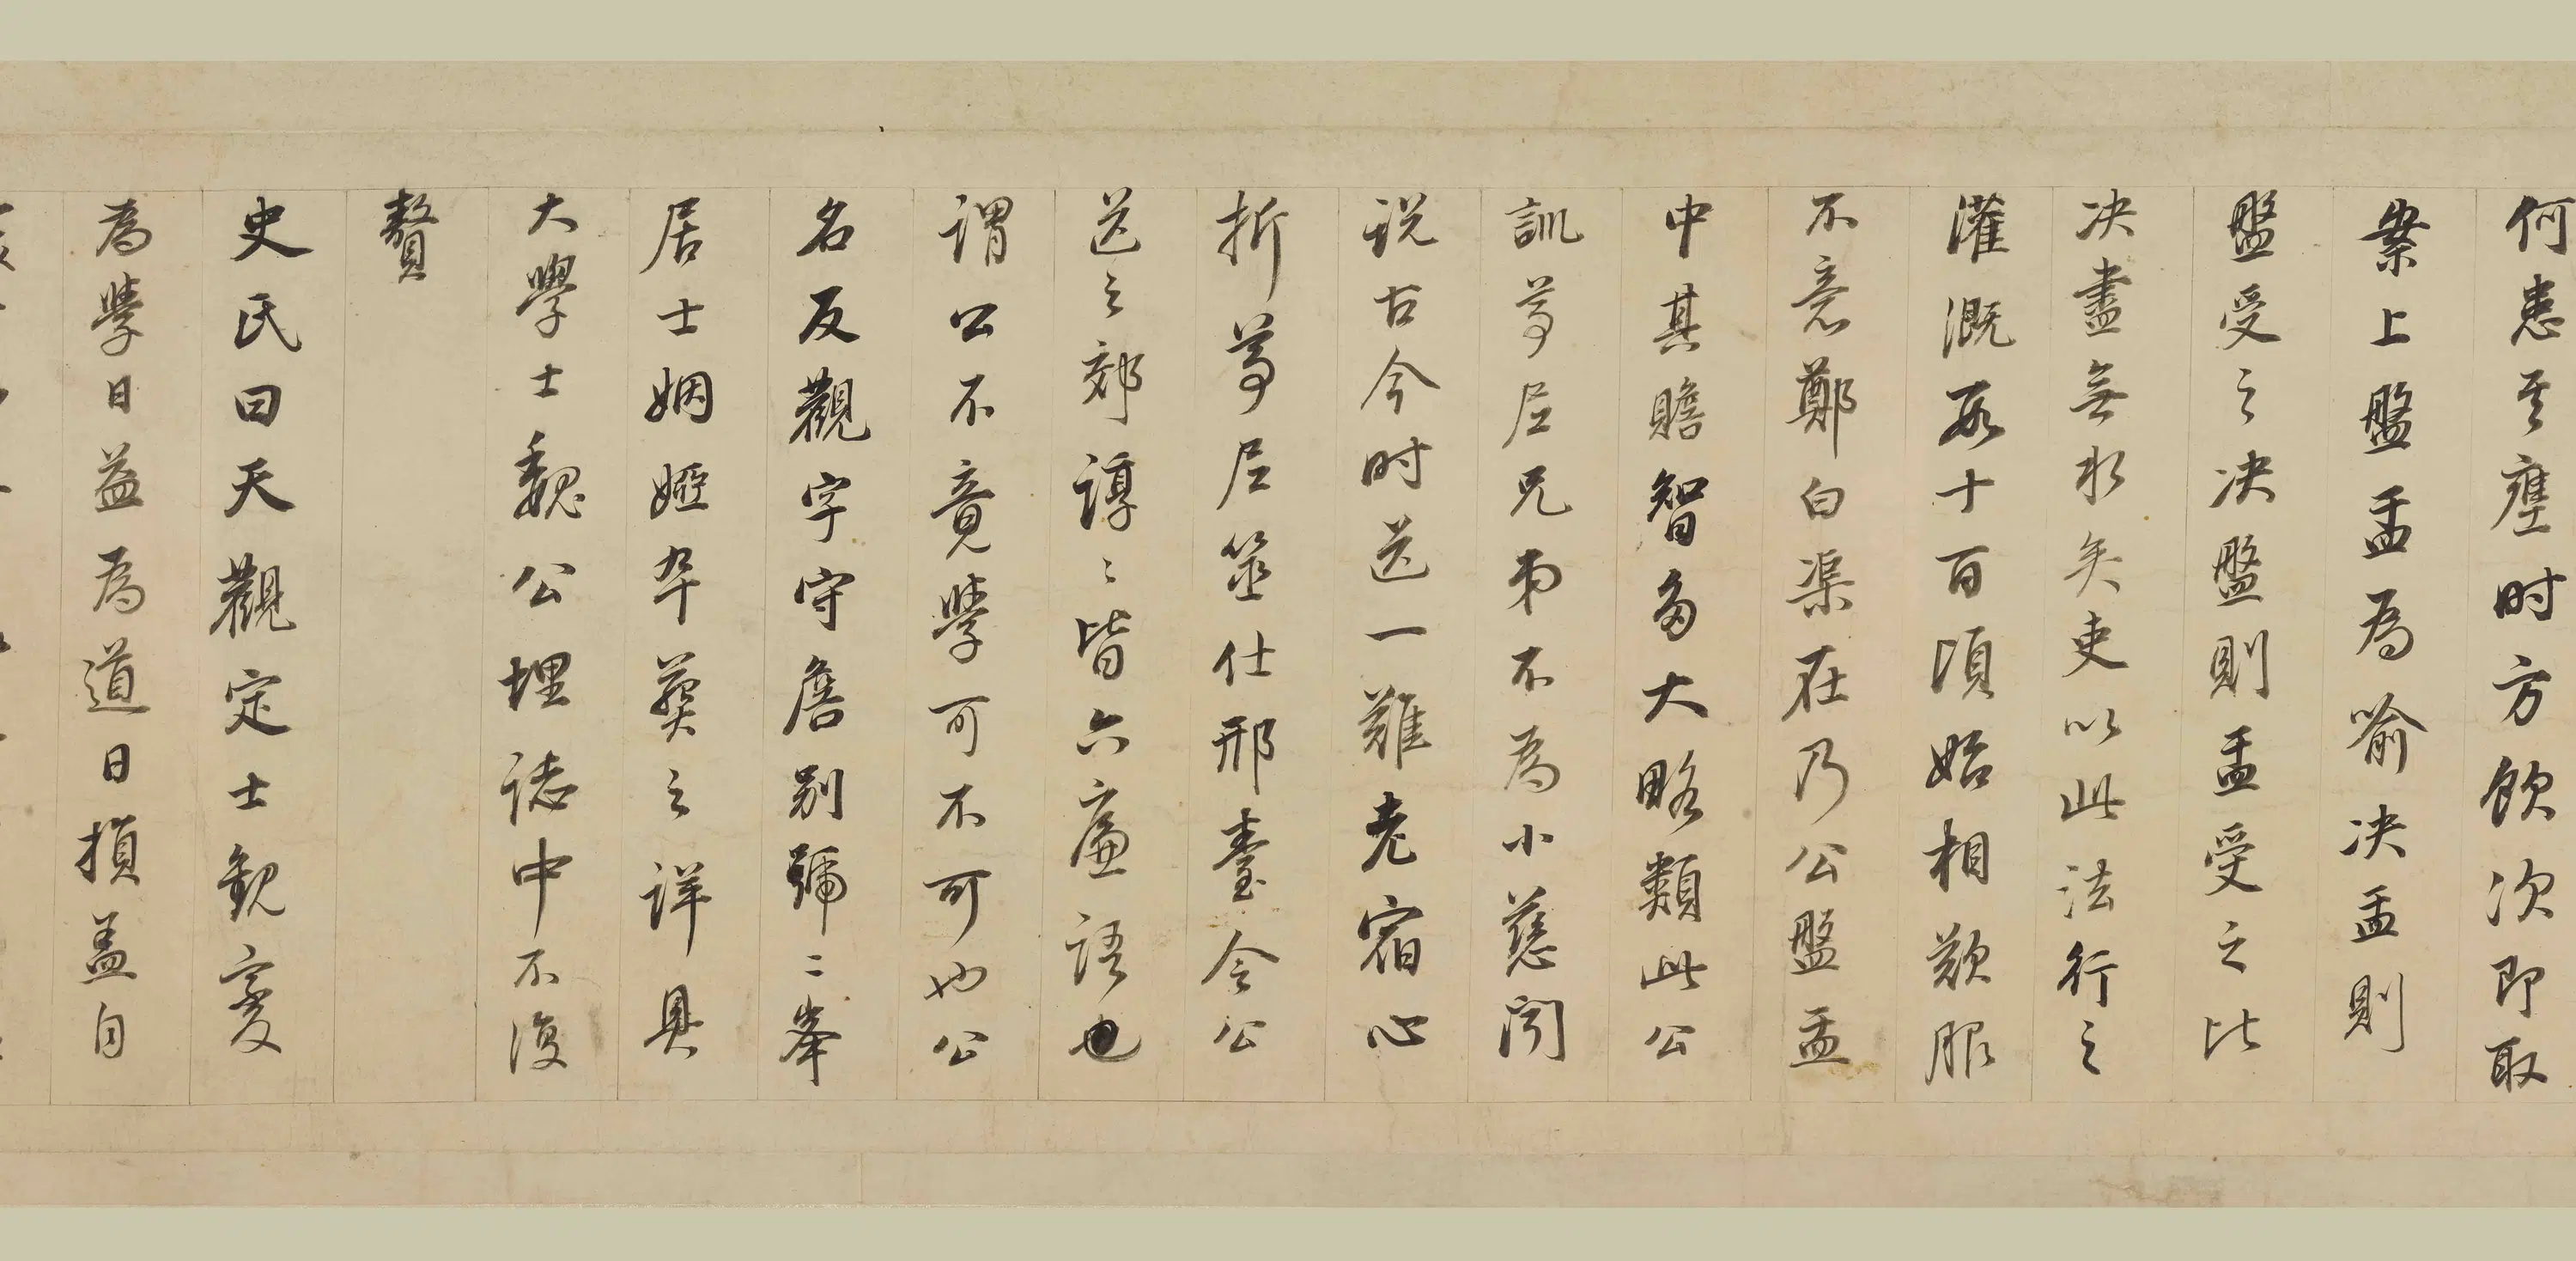 何患其壅时方飲次即取
案上盤盂為喻决盂則
盤受之决盤則盂受之比
决盡無水矣吏以此法行之
灌溉数十百頃始相歎服
不意鄭白渠在乃公盤盂
中其贍智多大略類此公
訓尊尼兄弟不為小慈閒
说古今时送一難老宿心
折尊尼筮仕邢臺令公
送之郊諄〻皆六廉語也
謂公不竟學可不可也公
名反觀字守詹别號二峯
居士姻婭卒葬之详具
大學士魏公埋誌中不復
贅
史氏曰天觀定士觀变
為學日益為道日損盖自